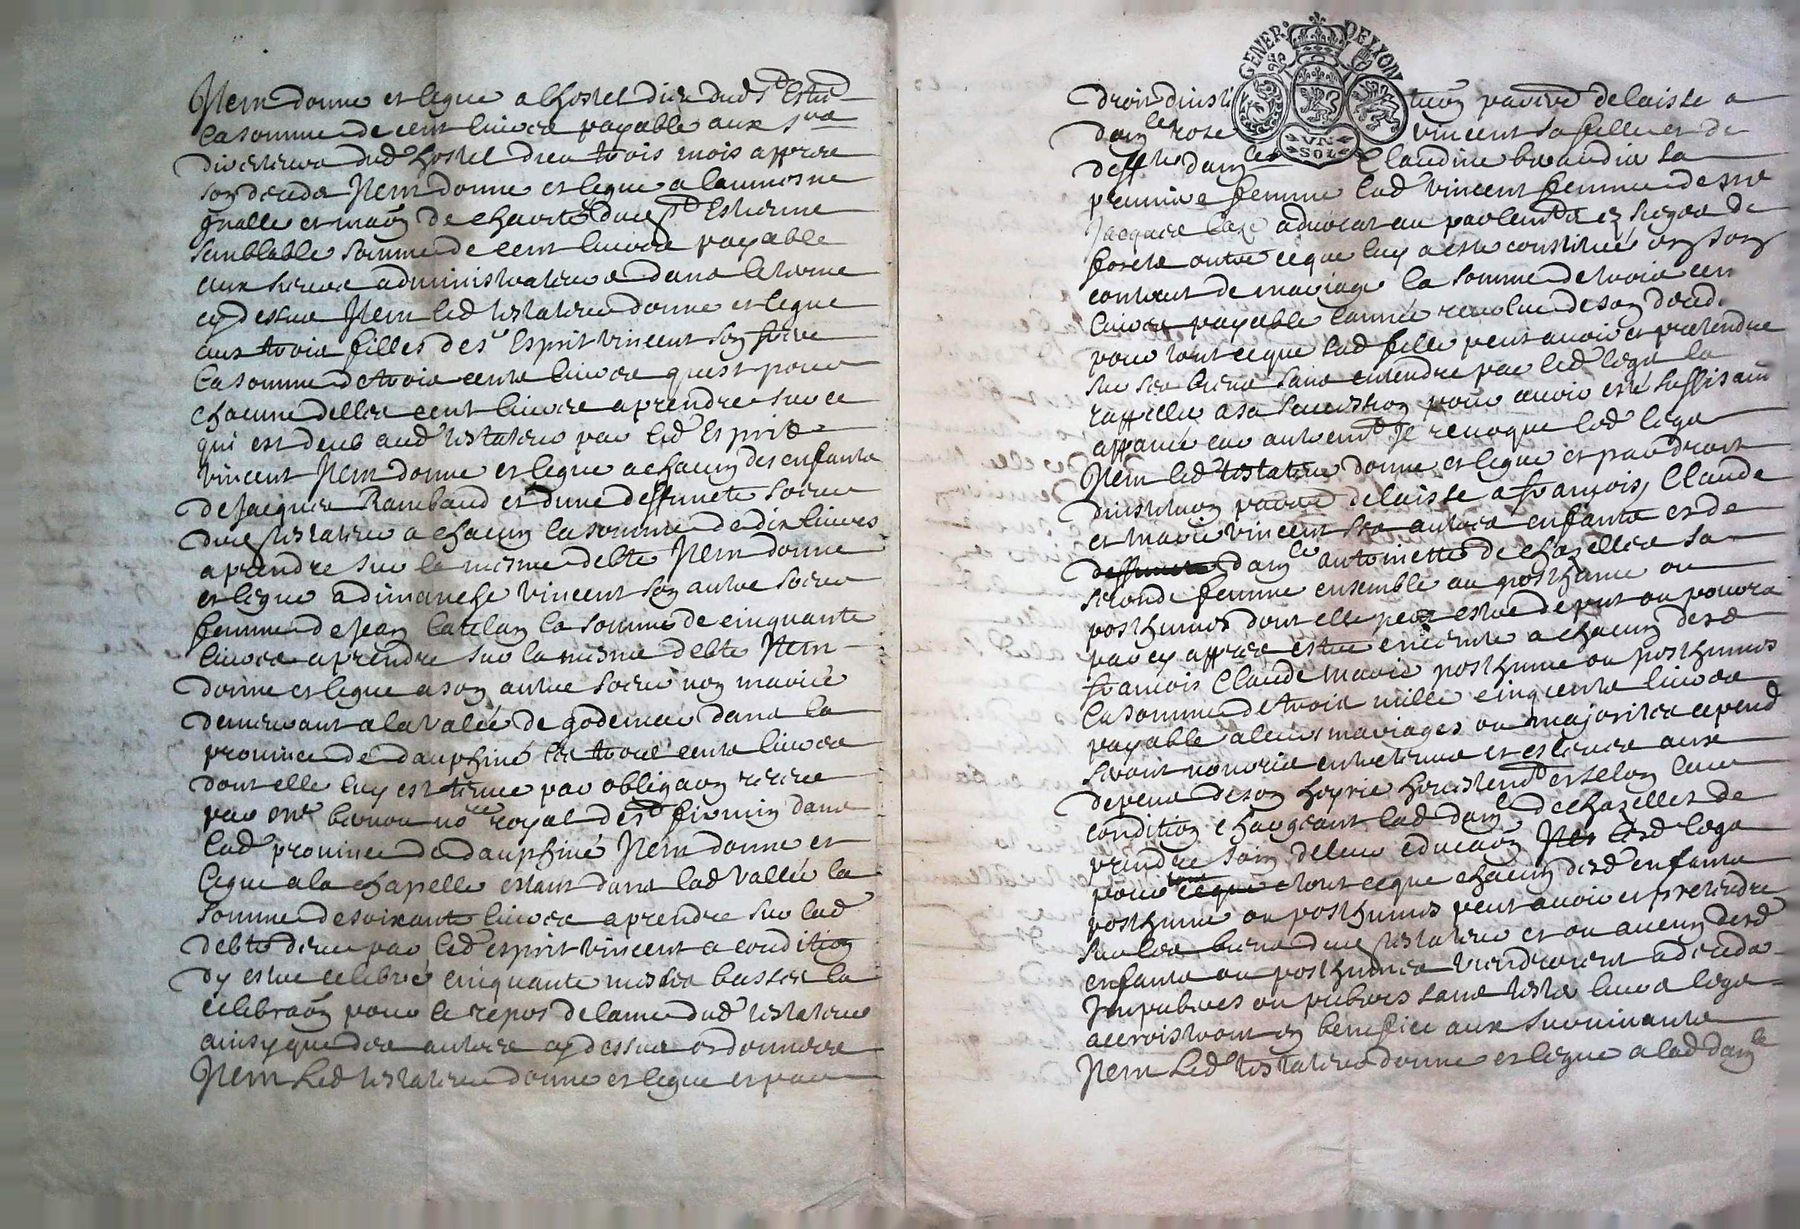 Item donne et legue a lhostel dieu dud St Estie
la somme de cent livres payable aux srs
directeurs dud hostel dieu trois mois appres
son deceds Item donne et legue a laumosne
gnalle et maon de charité dud St Estienne
semblable somme de cent livres payable
aux sieurs administrateurs dans le terme
cy dessus Item led testateur donne et legue
aux trois filles de sr Esprit vincent son frere
la somme de trois cents livres quest pour
chacune delles cent livres a prendre sur ce
qui est deub aud testateur par led Esprit
vincent Item donne et legue a chacun des enfants
de Jacques Rambaud et dune deffuncte soeur
dud testateur a chacun la somme de dix livres
a prendre sur la mesme debte Item donne
et legue a dimanche vincent son autre soeur
femme de Jean Catelan la somme de cinquante
livres a prendre sur la mesme debte Item
donne et legue a son autre soeur non mariée
demeurant a la valée de godemar dans la
province de dauphiné les trois cents livres
dont elle luy est tenue par obligaon receue
par me nore royal de St firmin dans
lad province de dauphiné Item donne et
legue a la chapelle estant dans lad vallée la
somme de soixante livres a prendre sur lad
debte deue par led esprit vincent a condition
dy estre celebré cinquante messes basses la
celebraon pour le repos de lame dud testateur
ainsy que des autres cy dessus ordonnées
Item Led testateur donne et legue et par
GENER DE LYON
VN SOL
droit dinsti tuon parire delaisse a
damlle rose vincent sa fille et de
deffte damlle Claudine brandia sa
premiere femme lad vincent femme de me
Jacques advocat au parlemt et sieges de
forests outre ce que luy a esté constitué en son
contract de mariage la somme de trois cent
livres payable lannée revolue de son deceds
pour tout ce que lad fille peut avoir et pretendre
sur ses biens sans entendre par led legs la
rappeller a sa succession pour avoir esté suffisam
appanée car autremt Je revoque led legs
Item led testateur donne et legue et par droit
dinstituon parire delaisse a françois, Claude
et marie vincent ses autres enfants et de
damlle antoinette de chazelles sa
seconde femme ensemble au posthume ou
posthumes dont elle peut estre de put ou pourra
par cy appres estre enceinte a chacun desd
françois Claude marie posthume ou posthumes
la somme de trois mille cinq cents livres
payable a leurs mariages ou majorités cepend
seront nourris entretenus et eslevés aux
depens de son hoyrie honestemt et selon leur
condition chargeant lad damlle de chazelles de
prendre soin de leur educaon lesd legs
pour tout ce que chacun desd enfants
posthume ou posthumes peut avoir et pretendre
sur les biens dud testateur et ou aucun desd
enfants ou posthumes viendroient a deceds
Impuberes ou puberes sans tester leurs legs
accroistront en benefice aux survivants
Item Led testateur donne et legue a lad damlle